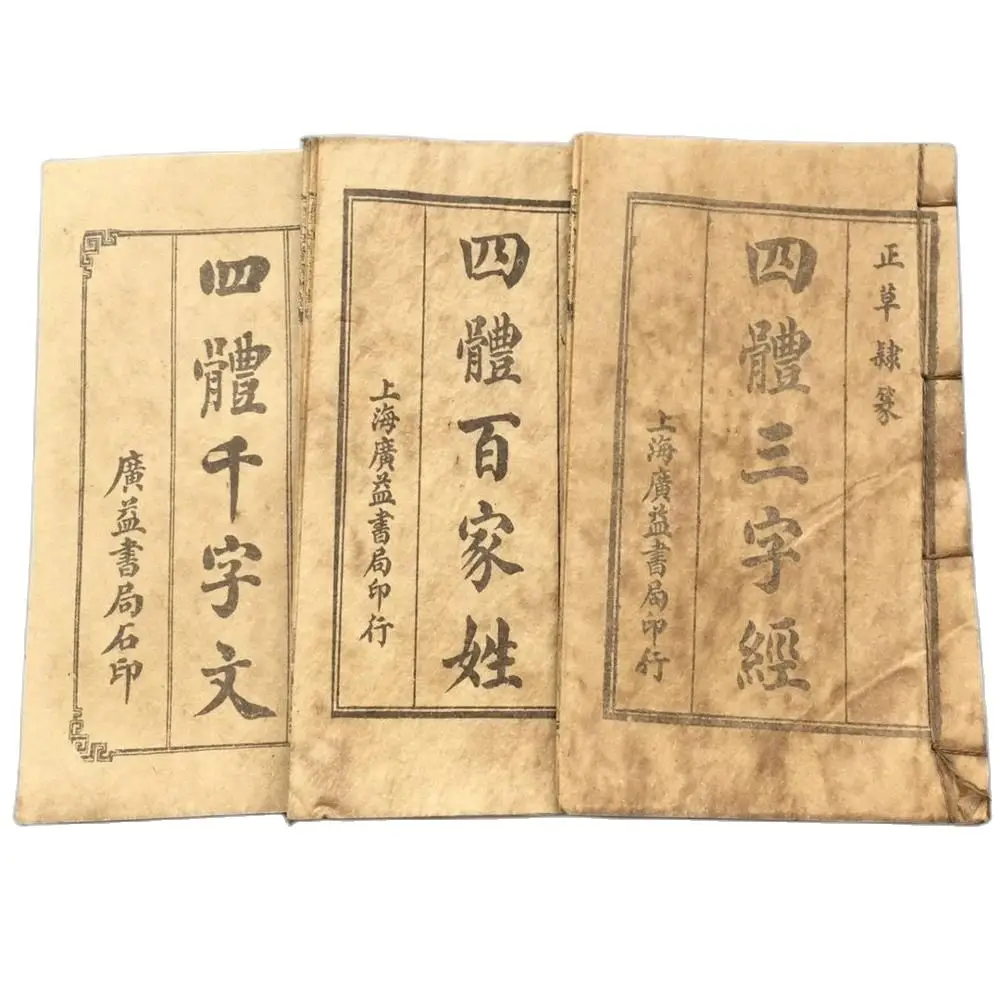 正草隸篆
四體三字經
上海廣益書局印行
四體百家姓
上海廣益書局印行
四體千字文
廣益書局石印